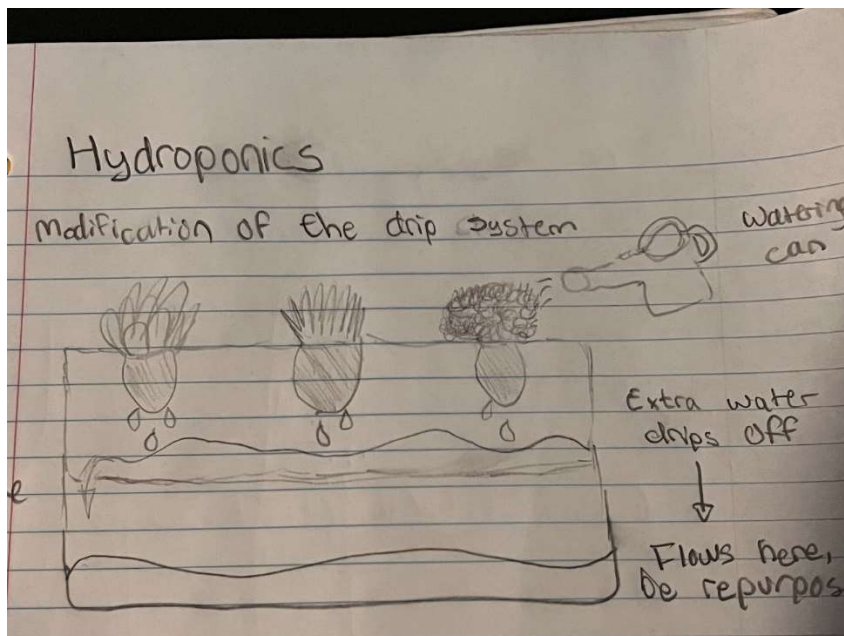 Hydroponics
modification of the drip system
watering
can
Extra water
drips off
Flows here,
be repurpos
e